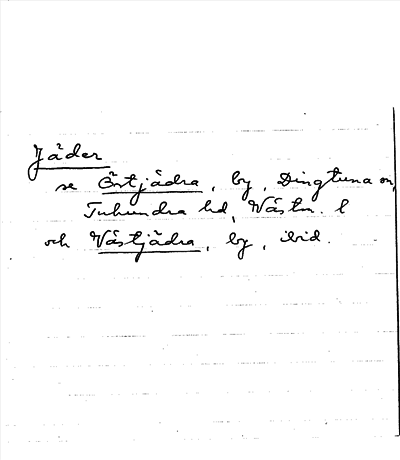 Jäder
se Östjädra, by, Dingtuna sn,
Tuhundra hd, Västm. l
och Västjädra, by, ibid.